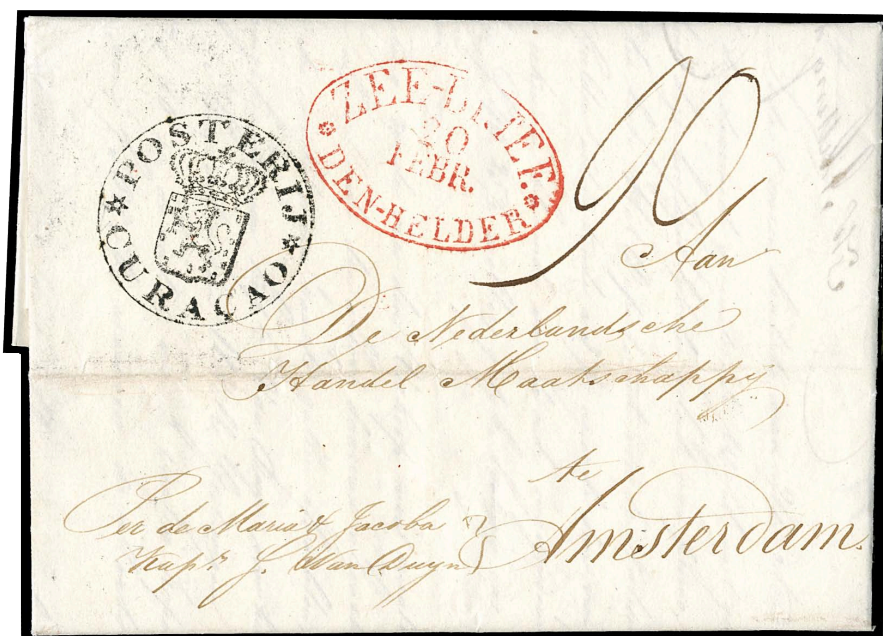 * POSTERIJ *
CURAÇAO
* ZEE-BRIEF. *
20
FEBR.
DEN-HELDER
90
Aan
De Nederlandsche
Handel Maatschappy
te
Amsterdam.
Per de Maria & Jacoba
Kapt. J. Van Duyn